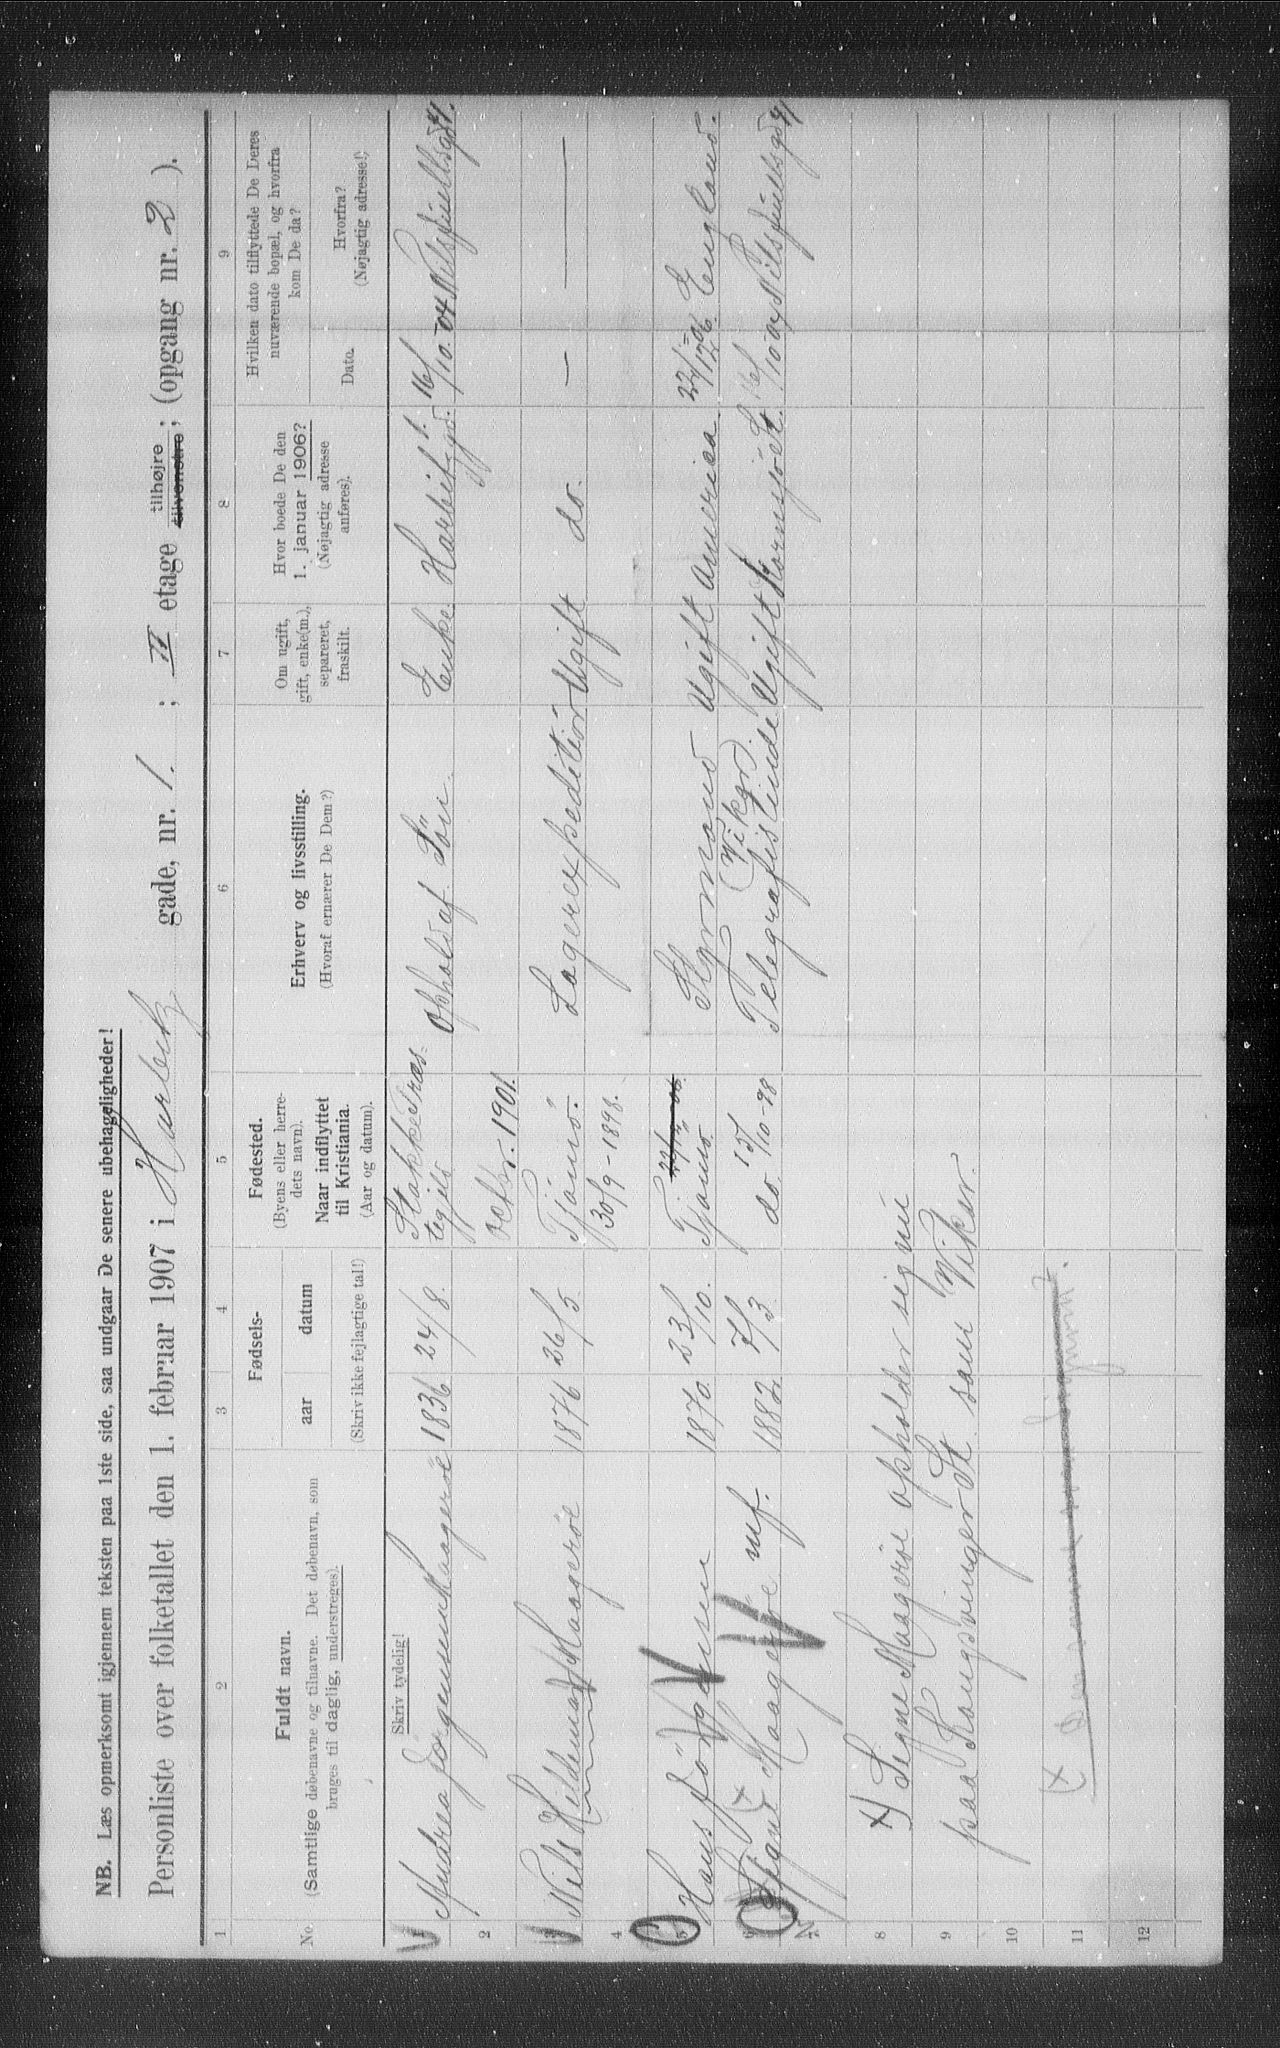 NB. Læs opmerksomt igjennem teksten paa 1ste side, saa undgaar De senere ubehageligheder!
Personliste over folketallet den 1. februar 1907 i Harbitz gade, nr. 1. ; II etage tilhøjre tilvenstre; (opgang nr. 2 ).
1 2 3 4 5 6 7 8 9
No
Fuldt navn.
(Samtlige døbenavne og tilnavne. Det døbenavn, som
bruges til daglig, understreges).
Skriv tydelig!
Fødsels-
aar datum
(Skriv ikke fejlagtige tal!)
Fødested.
(Byens eller herre-
dets navn).
Naar indflyttet
til Kristiania.
(Aar og datum).
Erhverv og livsstilling.
(Hvoraf ernærer De Dem?)
Om ugift,
gift, enke(m.),
separeret,
fraskilt.
Hvor boede De den
1. januar 1906?
(Nøjagtig adresse
anføres).
Hvilken dato tilflyttede De Deres
nuværende bopæl, og hvorfra
kom De da?
Dato.
Hvorfra?
(Nøjagtig adresse!)
Andrea Jörgensen Maagerøe 1836 24/8. Stokke Præs-
tegjeld Ophold af Sön. Enke Harbitzgd. 1. 16/10.-04 Nils Juellsgd 41.
2 Octbr. 1901.
3 Niels Hildemar Maagerøe 1876 26/5 Tjömö. Lagerexpeditiör Ugift do. —
4 30/9-1898.
5 Hans Jörgensen 1870. 23/10. Tjömö. Styrmand Ugift America 22/12-06. England.
6 Signe x) Maagerøe mf. 1882. 7/3 do. 15/10-98 Telegrafistinde (Vikar) Ugift Kornsjö St. 16/10 04 Nils Juellsgd 41
7
8 x) Signe Maagerøe opholder signu
9 paa Kongsvinger St. som Vikar.
10
11
12